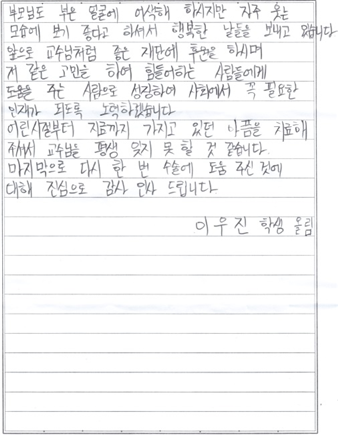 부모님도 부은 얼굴에 어색해 하시지만 자주 웃는
모습에 보기 좋다고 하셔서 행복한 날들을 보내고 있습니다
앞으로 교수님처럼 좋은 재단에 후원을 하시며
저 같은 고민을 하여 힘들어하는 사람들에게
도움을 주는 사람으로 성장하여 사회에서 꼭 필요한
인재가 되도록 노력하겠습니다
어린시절부터 지금까지 가지고 있던 아픔을 치료해
주셔서 교수님을 평생 잊지 못 할 것 같습니다.
마지막으로 다시 한 번 수술에 도움 주신 것에
대해 진심으로 감사 인사 드립니다
이우진 학생 올림